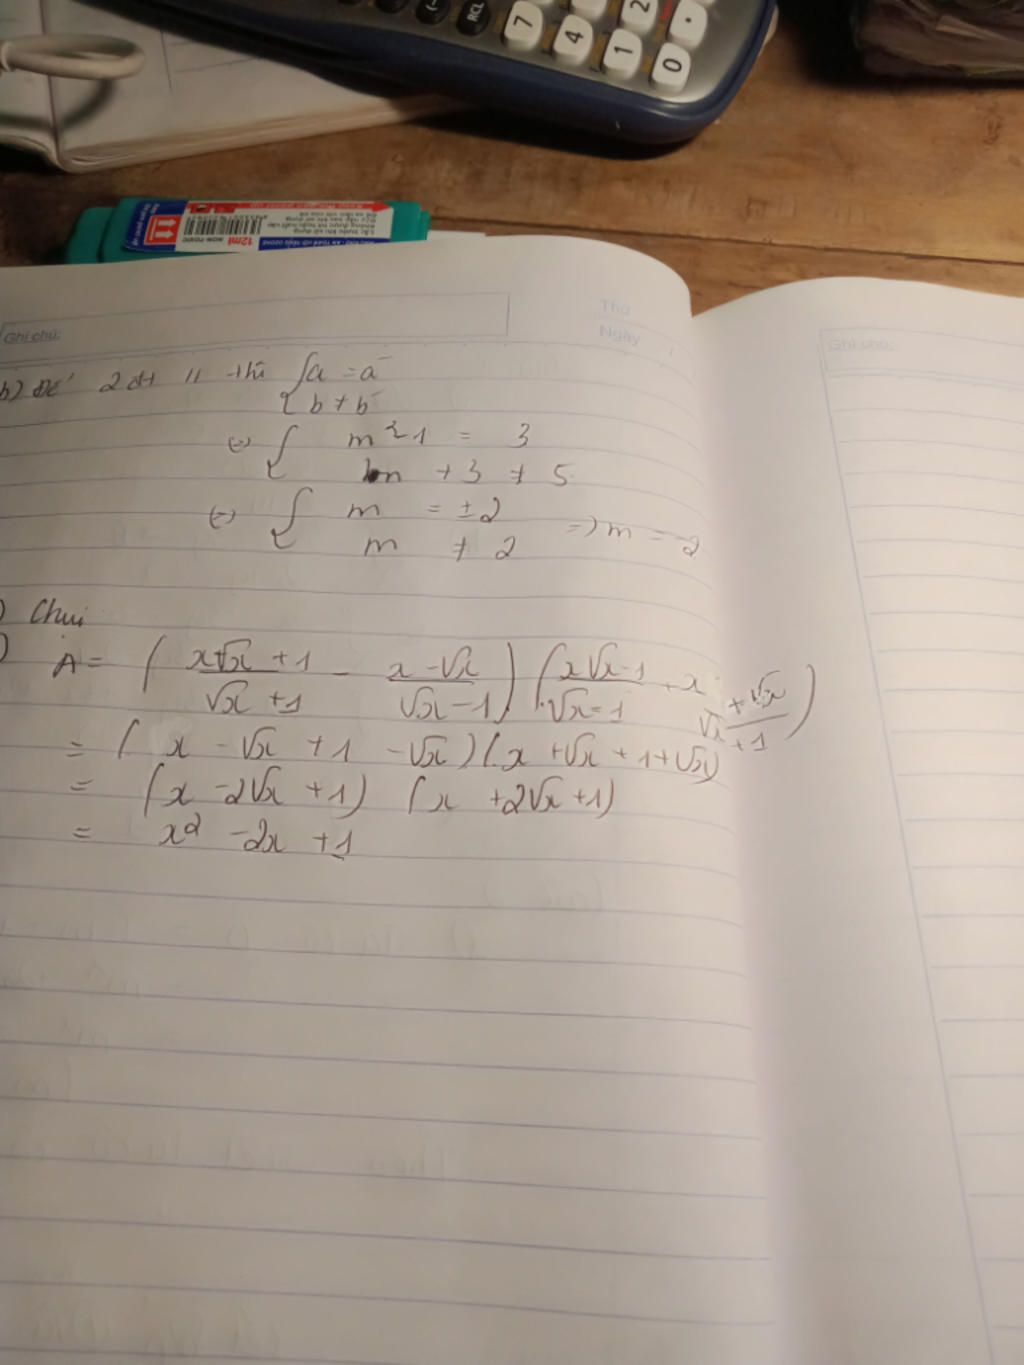 RCL
7
4
1
2
0
12ml
Thứ
Ngày
Ghi chú:
Ghi chú:
b) Để 2 đt // thì { a = a'
b ≠ b'
(=) { m² - 1 = 3
m + 3 ≠ 5
(=) { m = ±2
m ≠ 2 => m = -2
) Chui
) A = ( x√x + 1 / √x + 1 - x - √x / √x - 1 ) ( x√x - 1 / √x - 1 + x + √x / √x + 1 )
= ( x - √x + 1 - √x ) ( x + √x + 1 + √x )
= ( x - 2√x + 1 ) ( x + 2√x + 1 )
= x² - 2x + 1